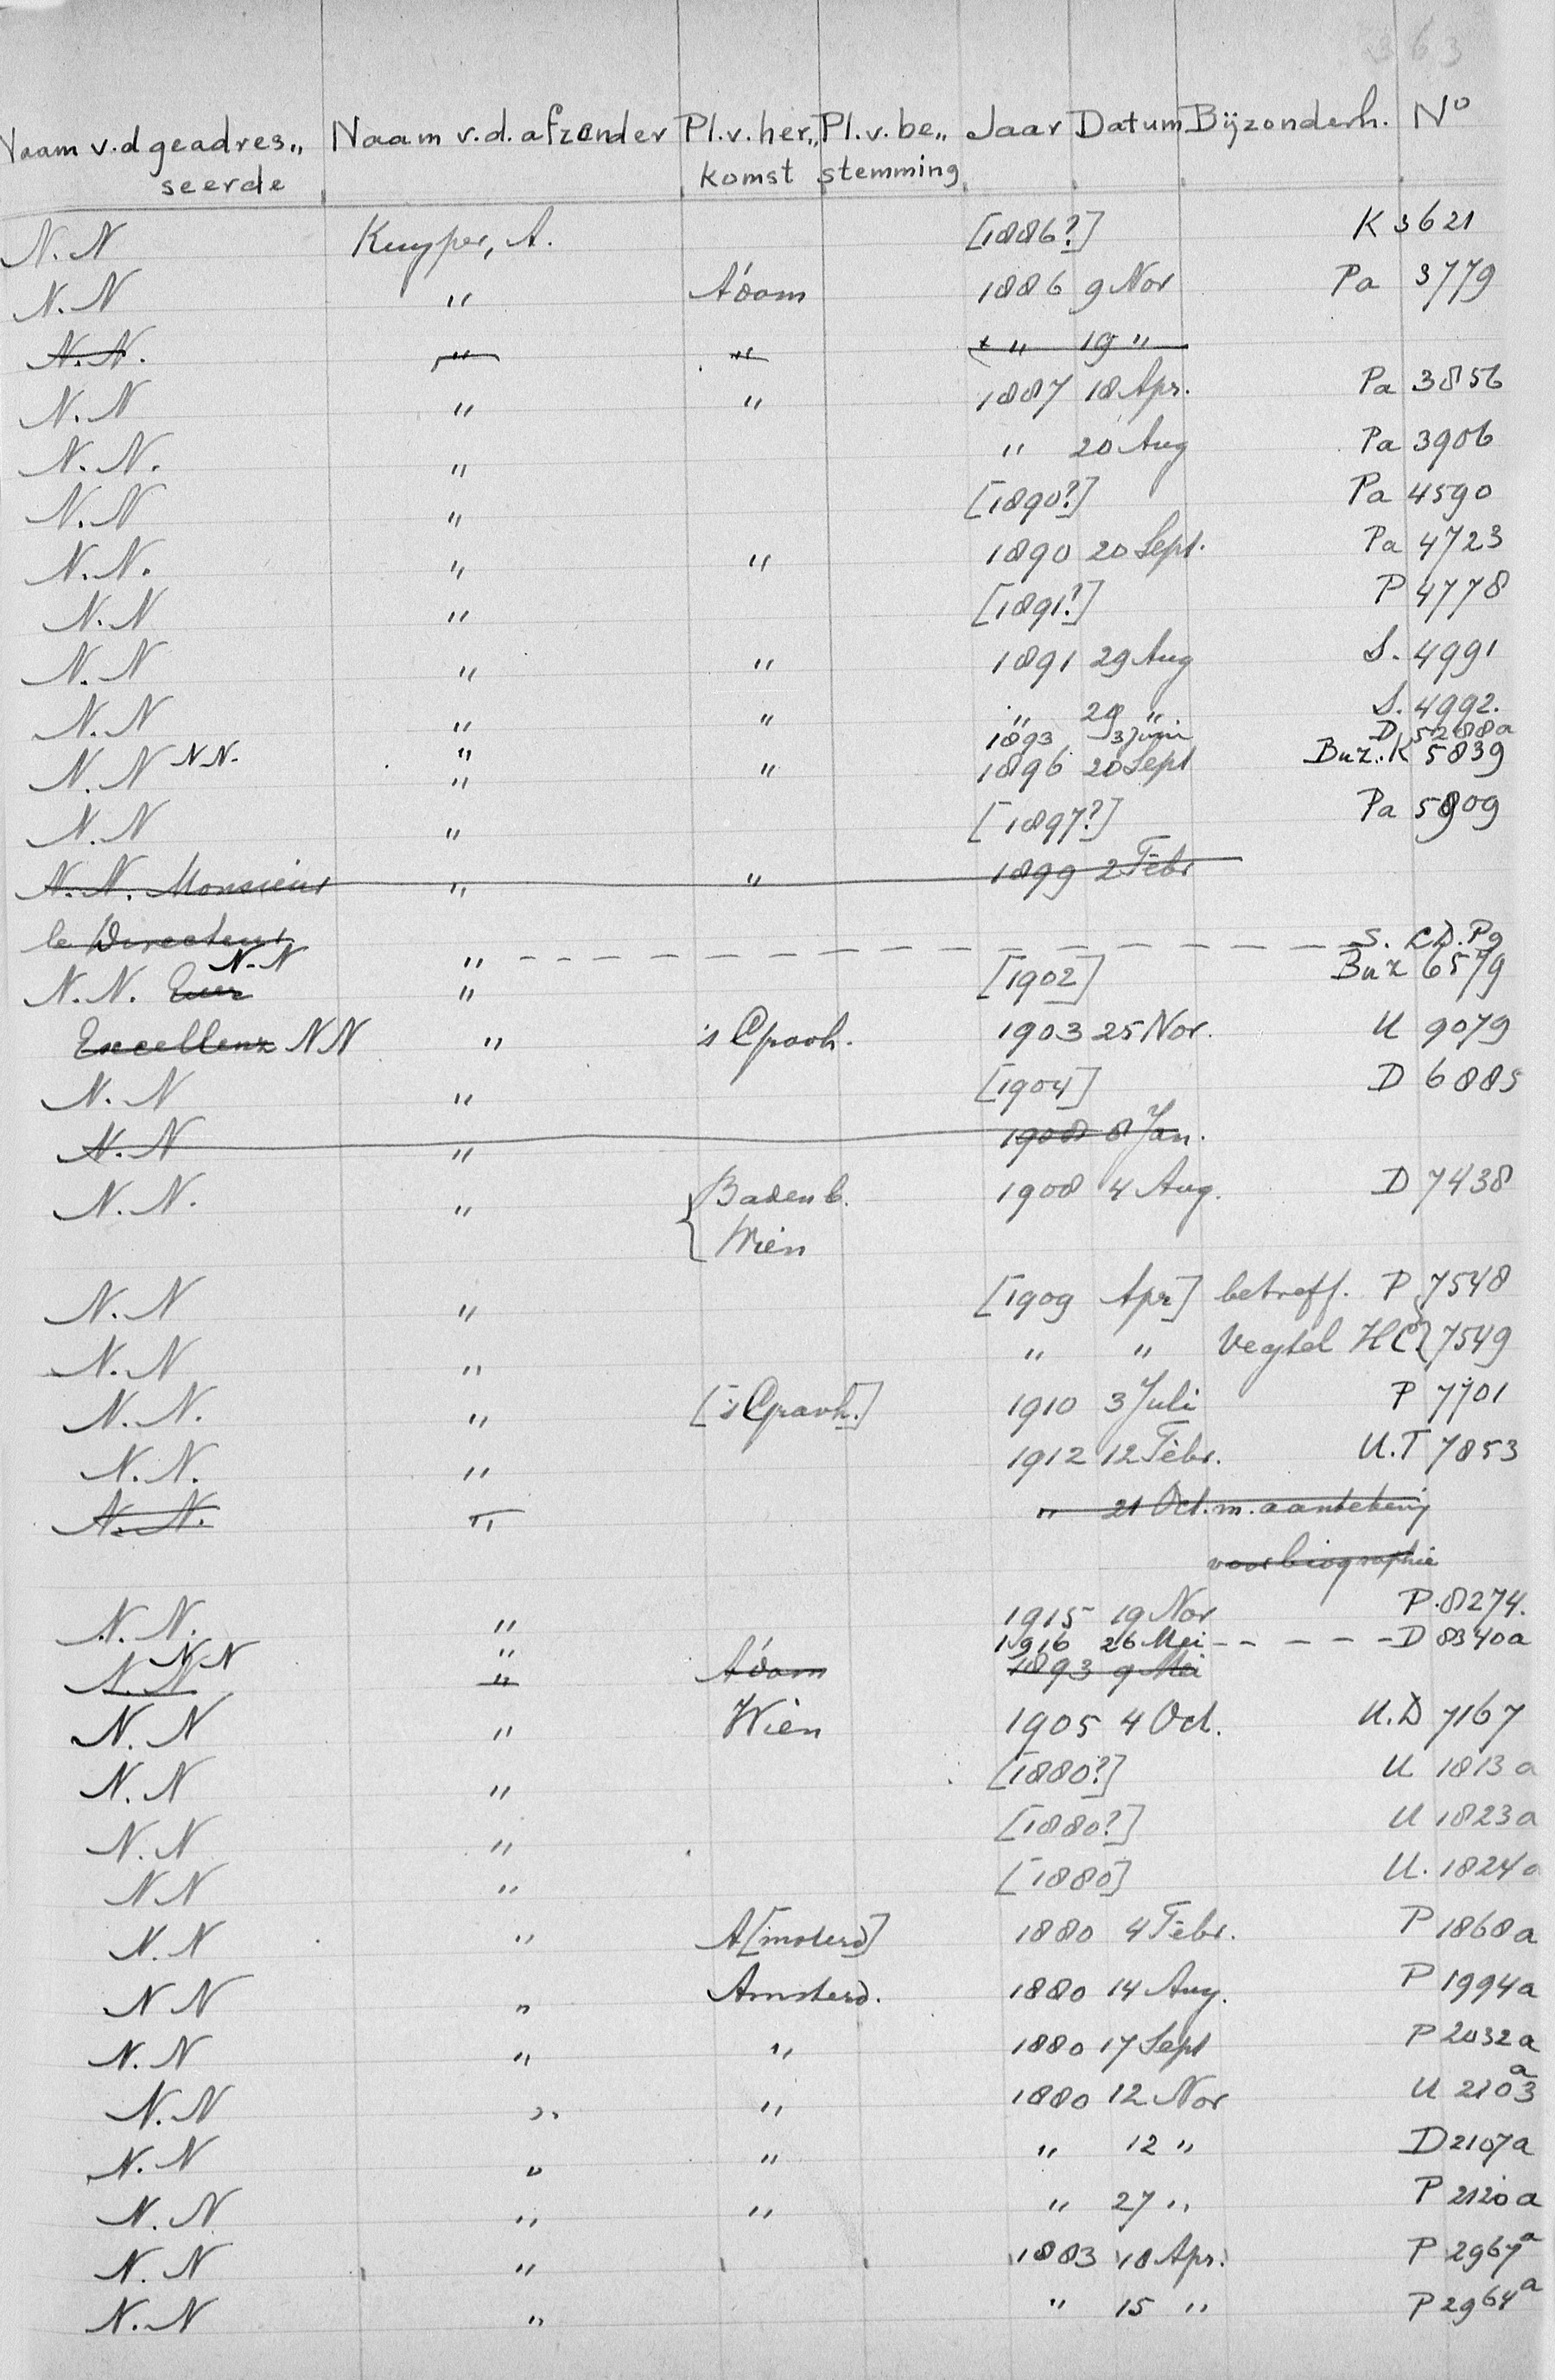 363
Naam v.d geadres„ Naam v.d. afzender Pl.v.her„ Pl.v.be„ Jaar Datum Bijzonderh. Nº
seerde komst stemming
N.N Kuyper, A. [1886?] K 3621
N.N " A'dam 1886 9 Nov Pa 3779
N.N. " " " 19 "
N.N " " 1887 18 Apr. Pa 3856
N.N. " " 20 Aug Pa 3906
N.N " [1890?] Pa 4590
N.N. " " 1890 20 Sept. Pa 4723
N.N " [1891?] P 4778
N.N " " 1891 29 Aug S. 4991
N.N " " " 29 " S. 4992.
N.N. " 1893 3 Juni D 5288a
N.N " " 1896 20 Sept Buz. K 5839
N.N " [1897?] Pa 5909
N.N. Monsieur " " 1899 2 Febr
le Directeur
N.N " S. LD. Pg
N.N. Euer " [1902] Buz 6579
Excellenz NN " 's Gravh. 1903 25 Nov. U 9079
N.N " [1904] D 6885
N.N " 1908 8 Jan.
N.N. " { Baden b. 1908 4 Aug. D 7438
Wien
N.N " [1909 Apr] betreff. P 7548
N.N " " " Vegtel HC } 7549
N.N. " ['s Gravh.] 1910 3 Juli P 7701
N.N. " 1912 12 Febr. U.T 7853
N.N. " " 21 Oct. m. aantekenig
voor biographie
N.N. " 1915 19 Nov P. 8274.
N N " 1916 26 Mei D 8340a
N.N " A'dam 1893 9 Mei
N.N " Wien 1905 4 Oct. U.D 7167
N.N " [1880?] U 1813 a
N.N " [1880?] U 1823a
N N " [1880] U. 1824a
N.N " A[msterd] 1880 4 Febr. P 1868a
N N " Amsterd. 1880 14 Aug. P 1994a
N.N " " 1880 17 Sept P 2032a
N.N " " 1880 12 Nov U 2103a
N.N " " " 12 " D 2107a
N.N " " " 27 " P 2120a
N.N " 1883 18 Apr. P 2967a
N.N " " 15 " P 2964a